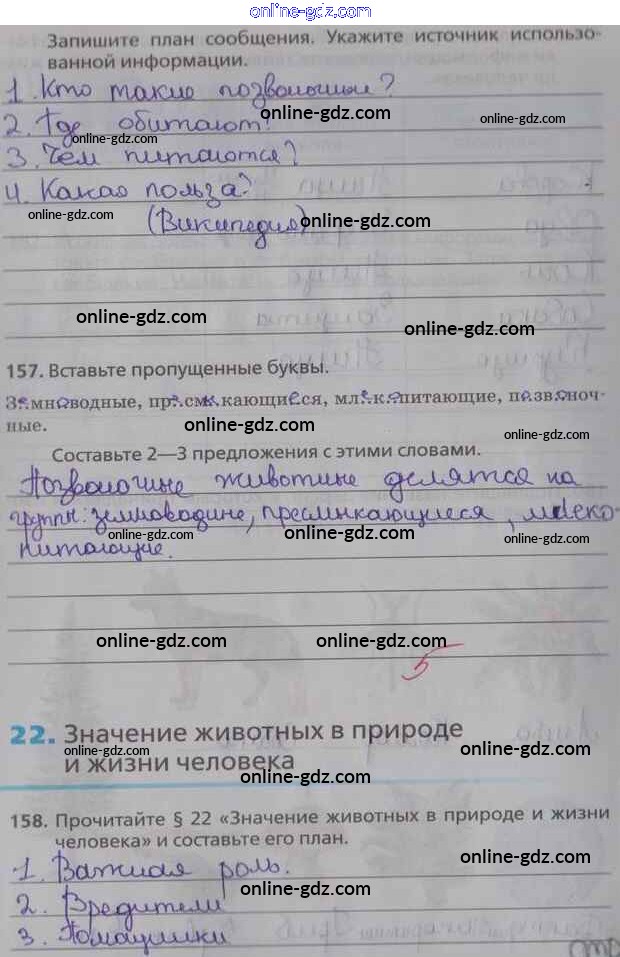 online-gdz.com
Запишите план сообщения. Укажите источник использо-
ванной информации.
1. Кто такие позвоночные?
online-gdz.com
2. Где обитают?
online-gdz.com
online-gdz.com
3. Чем питаются?
4. Какая польза?
online-gdz.com
(Википедия)
online-gdz.com
online-gdz.com
online-gdz.com
online-gdz.com
157. Вставьте пропущенные буквы.
Земноводные, пресмыкающиеся, млекопитающие, позвоноч-
ные.
online-gdz.com
Составьте 2—3 предложения с этими словами.
Позвоночные животные делятся на
группы: земноводные, пресмыкающиеся, млеко-
online-gdz.com
online-gdz.com
online-gdz.com
питающие.
online-gdz.com
online-gdz.com
5
22. Значение животных в природе
и жизни человека
online-gdz.com
online-gdz.com
online-gdz.com
158. Прочитайте § 22 «Значение животных в природе и жизни
человека» и составьте его план.
online-gdz.com
1. Важная роль.
online-gdz.com
2. Вредители
3. Домашники
online-gdz.com